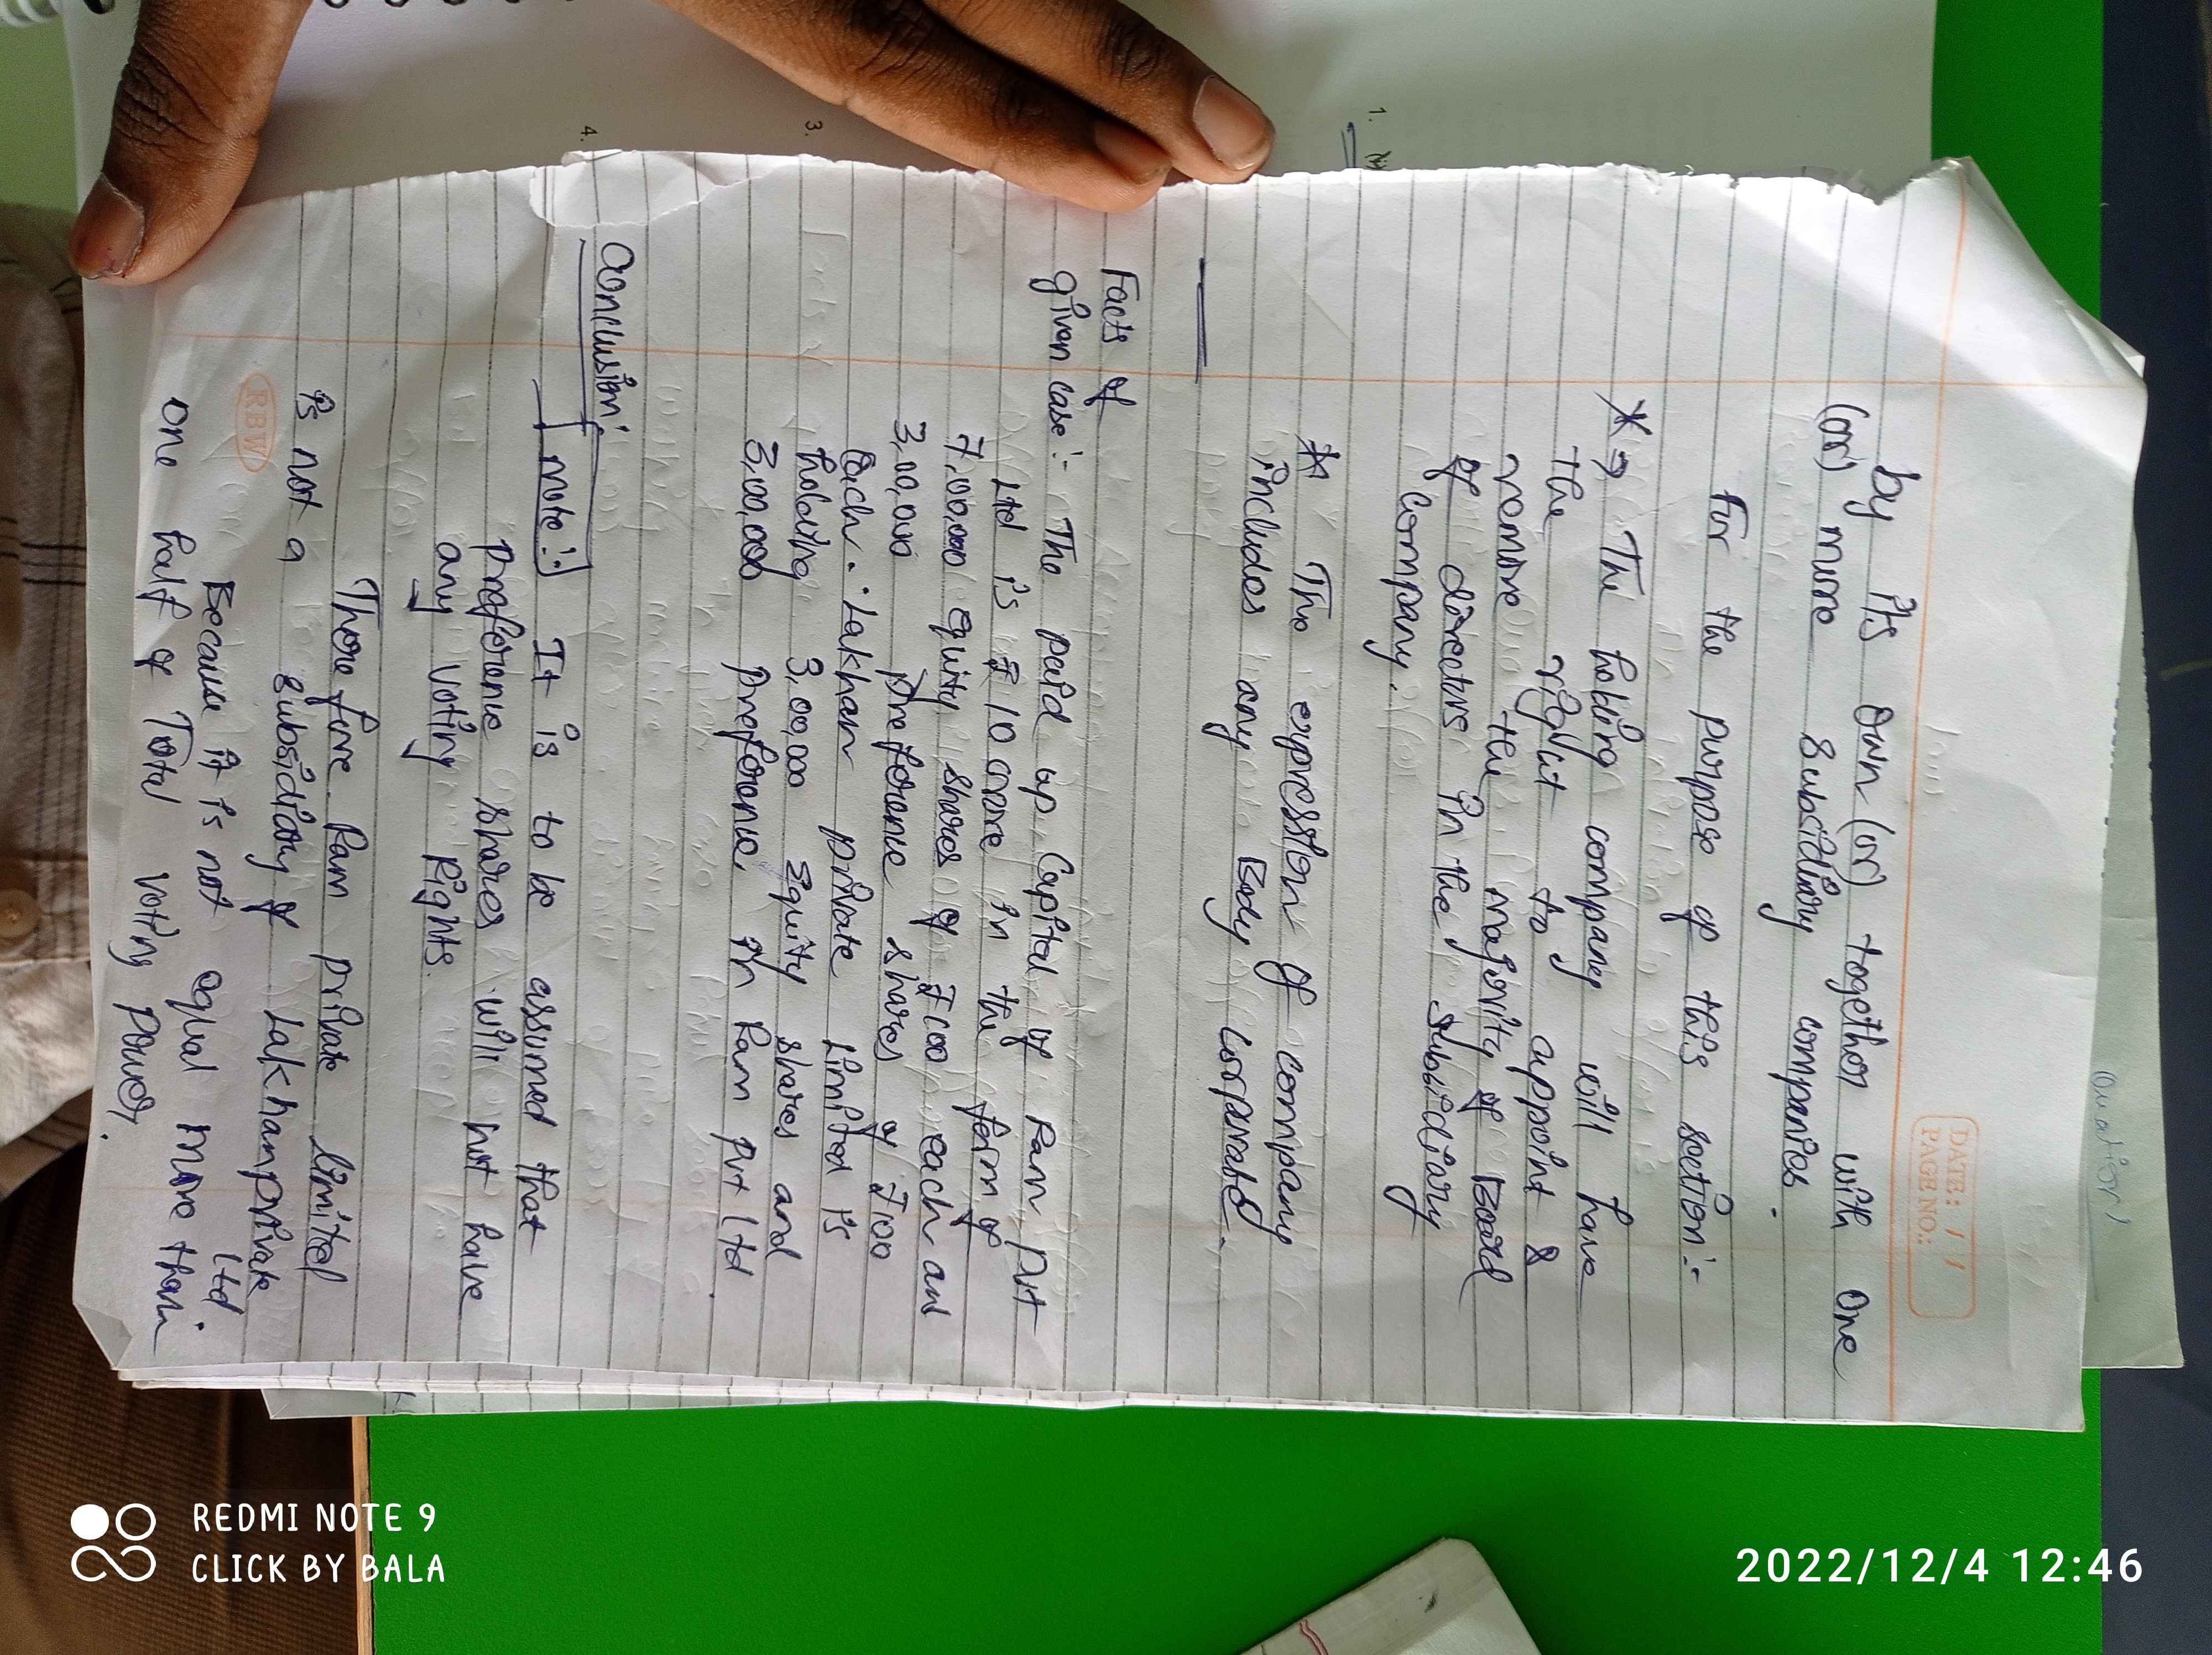 DATE: / /
PAGE NO.:
by its own (or) together with one
(or) more subsidiary companies.
For the purpose of this section:-
* → The holing company will have
the right to appoint &
remove the majority of Board
of directors in the subsidiary
company.
* The expression of company
includes any Body corporate.
Facts of
given case:- The paid up Capital of Ram Pvt
Ltd is ₹ 10 crore in the form of
7,00,000 equity shares of ₹100 each and
3,00,000 preference shares of ₹100
Each. Lakhan private limited is
holding 3,00,000 Equity shares and
3,00,000 preference in Ram Pvt Ltd.
Conclusion:
note:- It is to be assumed that
preference shares will not have
any voting Rights.
Therefore Ram private limited
is not a subsidiary of Lakhan private
Ltd.
Because it is not equal more than
one half of Total voting power.
RBW
1.
3.
4.
REDMI NOTE 9
CLICK BY BALA
2022/12/4 12:46